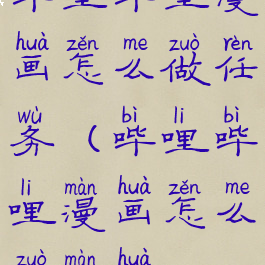 huà zěn me zuò rèn
画怎么做任
wù bì li bì
务（哔哩哔
li màn huà zěn me
哩漫画怎么
zuò màn huà